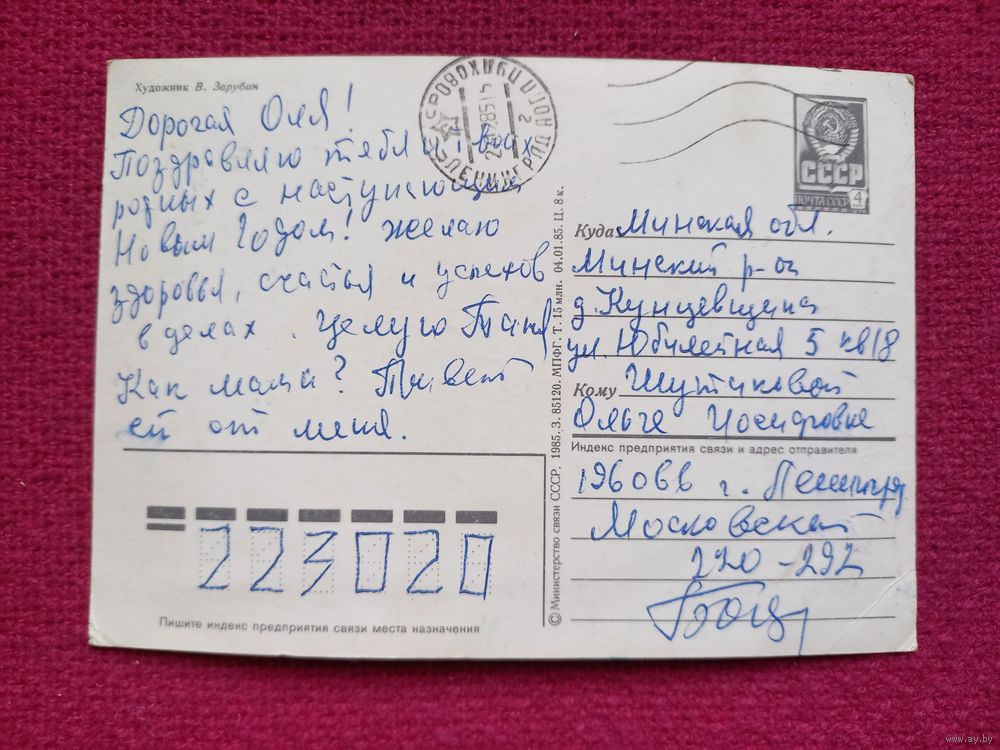 Художник В. Зарубин
Дорогая Оля!
Поздравляю тебя и твоих
родных с наступающим
Новым Годом! Желаю
здоровья, счастья и успехов
в делах. Целую Таня
Как мама? Привет
ей от меня.
223020
Пишите индекс предприятия связи места назначения
© Министерство связи СССР, 1985. З. 85120. МПФГ. Т. 15 млн. 04.01.85. Ц. 8 к.
ЛЕНИНГРАД
2
СССР
ПОЧТА СССР 4
Куда Минская обл.
Минский р-он
д. Кунцевщина
ул. Юбилейная 5 кв 18
Кому Шутиковой
Ольге Иосифовне
Индекс предприятия связи и адрес отправителя
196066 г. Ленинград
Московский
220-292
www.ay.by